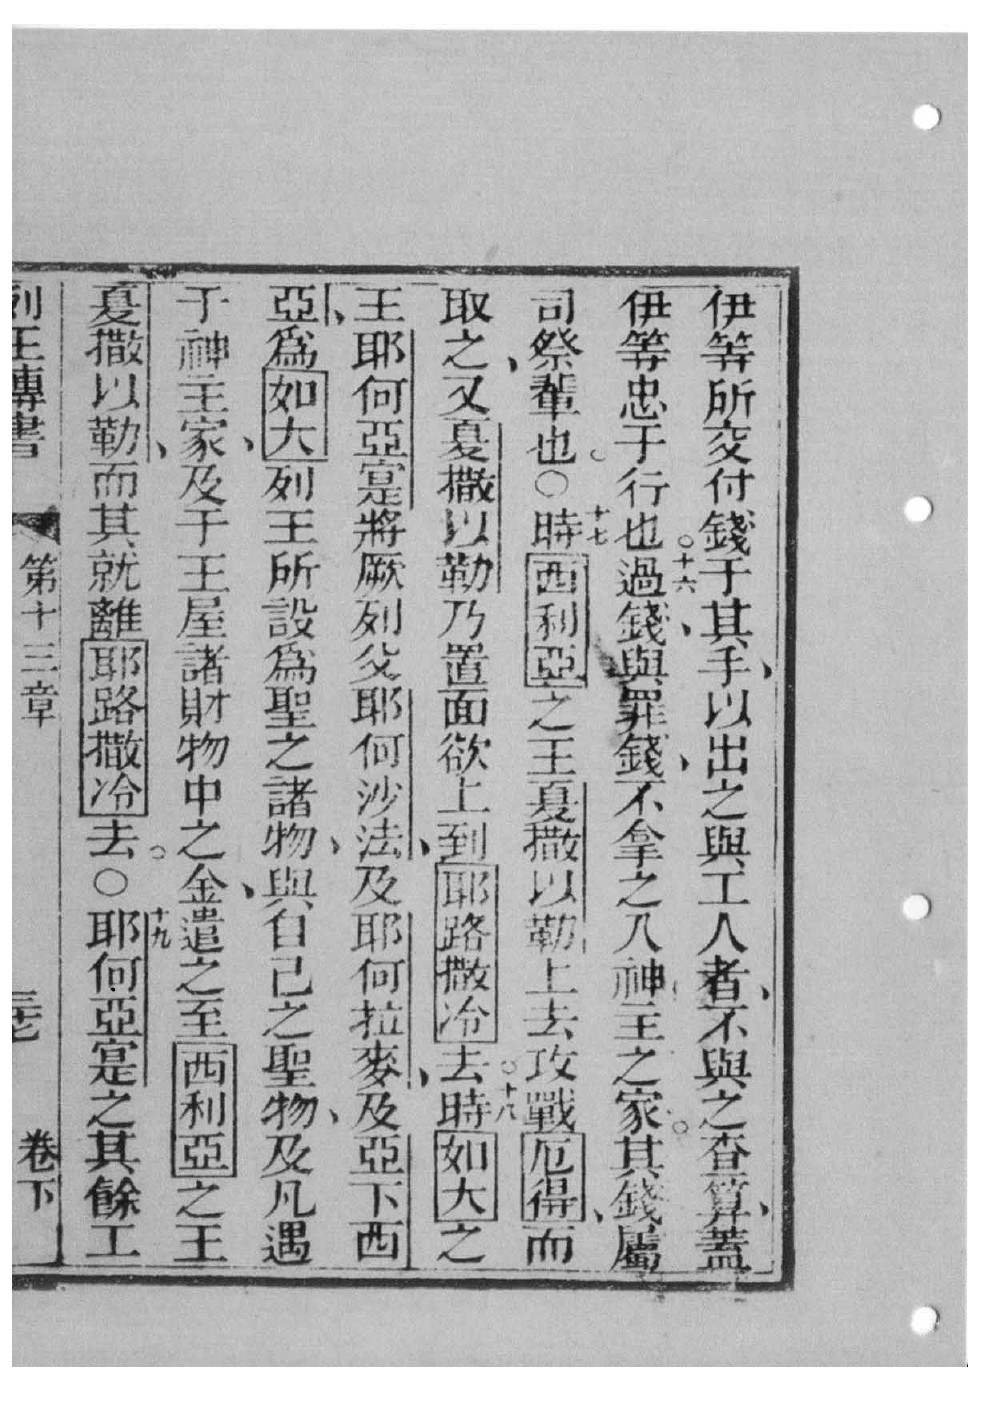 伊等所交付錢于其手、以出之與工人者、不與之查算、蓋
伊等忠于行也。十六過錢、與罪錢、不拿之入神主之家。其錢屬
司祭輩也。○十七時西利亞之王夏撒以勒上去攻戰厄得、而
取之、又夏撒以勒乃置面欲上到耶路撒冷去。十八時如大之
王耶何亞寔將厥列父耶何沙法、及耶何拉麥、及亞下西
亞、爲如大列王所設爲聖之諸物、與自己之聖物、及凡遇
于神主家、及于王屋諸財物中之金、遣之至西利亞之王
夏撒以勒、而其就離耶路撒冷去。○十九耶何亞寔之其餘工
列王傳書 第十三章 卷下